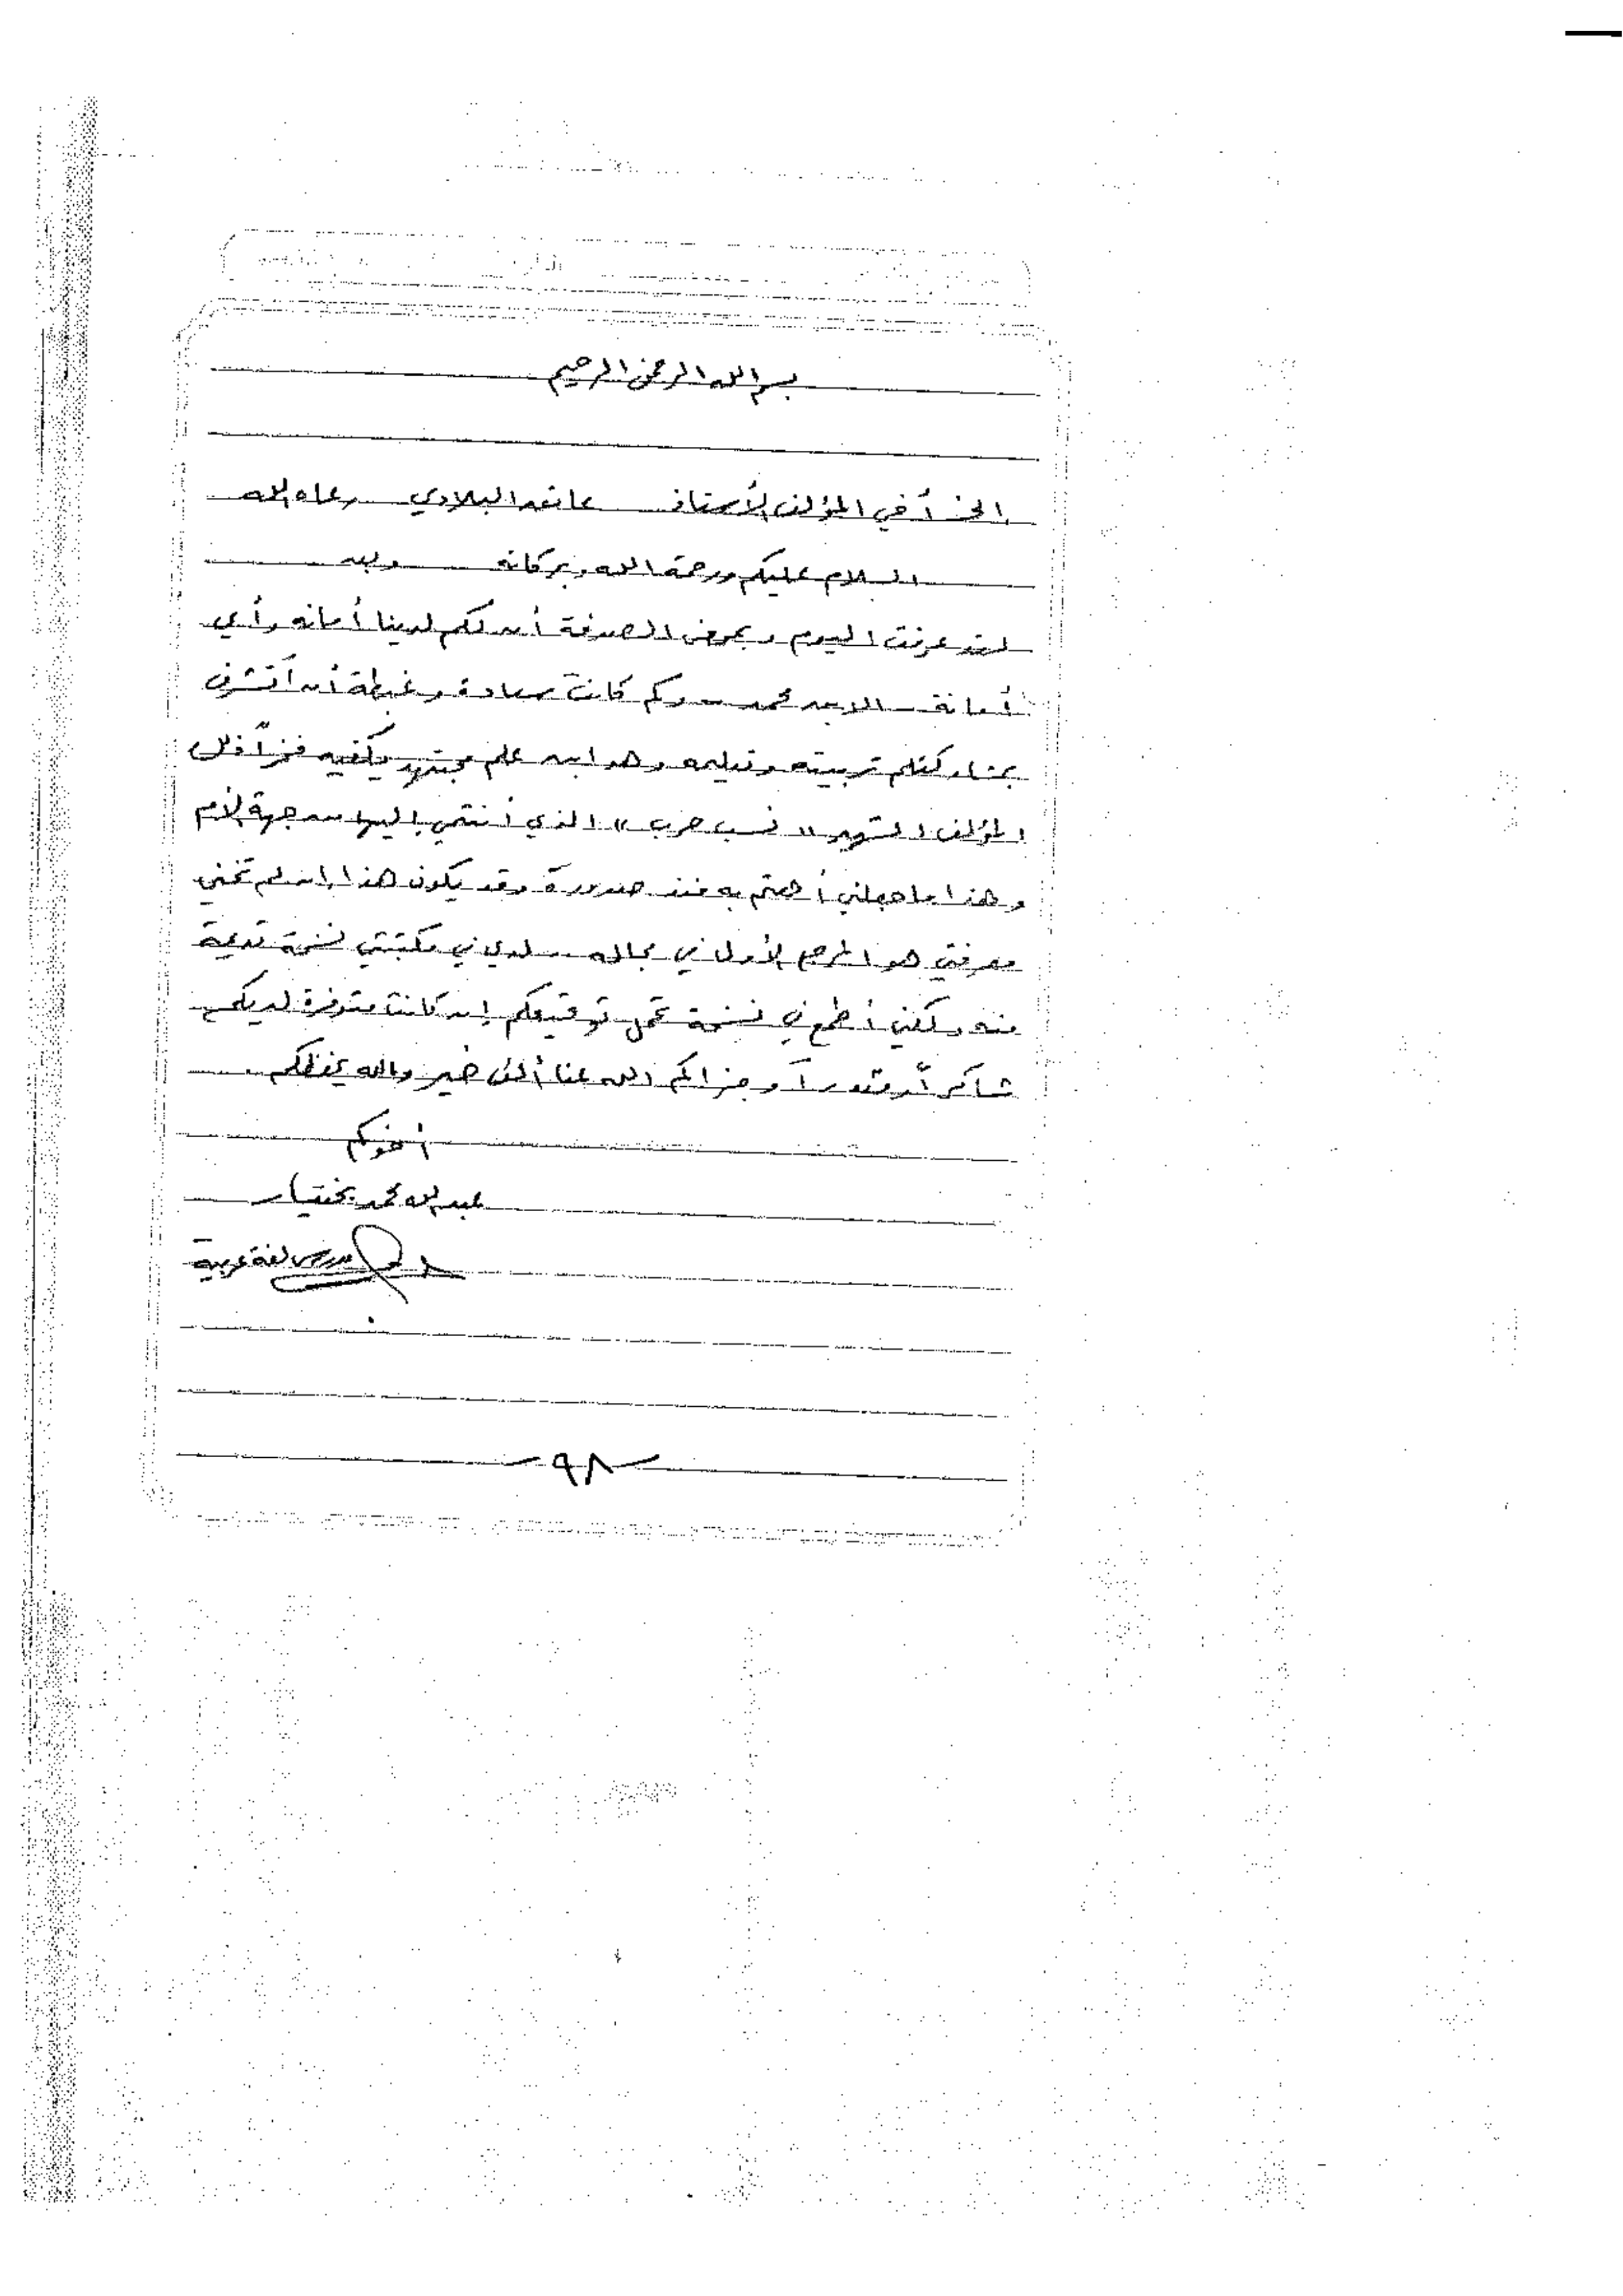 بسم الله الرحمن الرحيم
إلى أخي المؤلف الأستاذ عاتق البلادي رعاه الله
السلام عليكم ورحمة الله وبركاته وبعد
لقد عرفت اليوم وبمحض الصدفة أن لكم لدينا أمانة وأي
أمانة - الابن محمد - وكم كانت سعادة وغبطة أن أتشرف
بمشاركتكم تربيته وتعليمه وهو ابن علم مجتهد يكفيه فخراً
المؤلف الشهير « نسب حرب » الذي أنتمي إليها من جهة الأم
وهذا ما جعلني أهتم به منذ صدوره وقد يكون هذا إن لم تخني
معرفتي هو المرجع الأول في مجاله .. لدي في مكتبتي نسخة قديمة
منه ولكني أطمع في نسخة تحمل توقيعكم إن كانت متوفرة لديكم
شاكراً ومقدراً وجزاكم الله عنا ألف خير والله يحفظكم .
أخوكم
عبد الله محمد بختيار
مدرس لغة عربية
- ٩٨ -